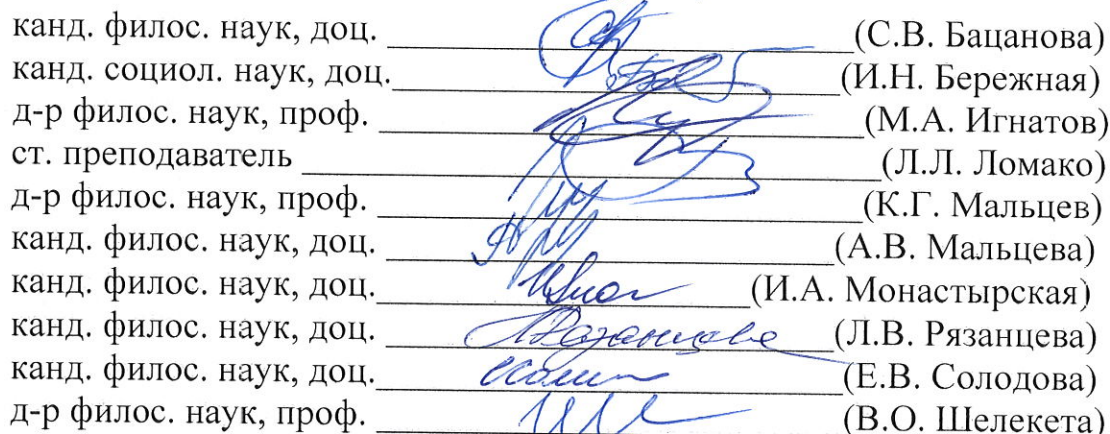 канд. филос. наук, доц. (С.В. Бацанова)
канд. социол. наук, доц. (И.Н. Бережная)
д-р филос. наук, проф. (М.А. Игнатов)
ст. преподаватель (Л.Л. Ломако)
д-р филос. наук, проф. (К.Г. Мальцев)
канд. филос. наук, доц. (А.В. Мальцева)
канд. филос. наук, доц. (И.А. Монастырская)
канд. филос. наук, доц. (Л.В. Рязанцева)
канд. филос. наук, доц. (Е.В. Солодова)
д-р филос. наук, проф. (В.О. Шелекета)